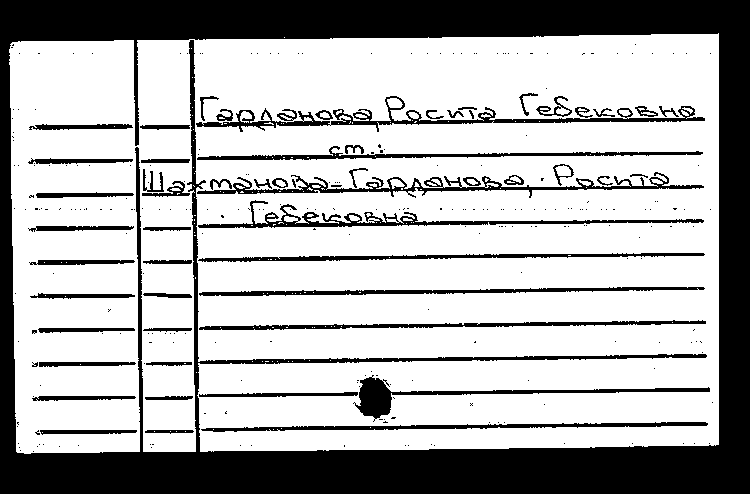 Гарданова, Росита Гебековна
ст.:
Шахманова-Гарданова, Росита
Гебековна